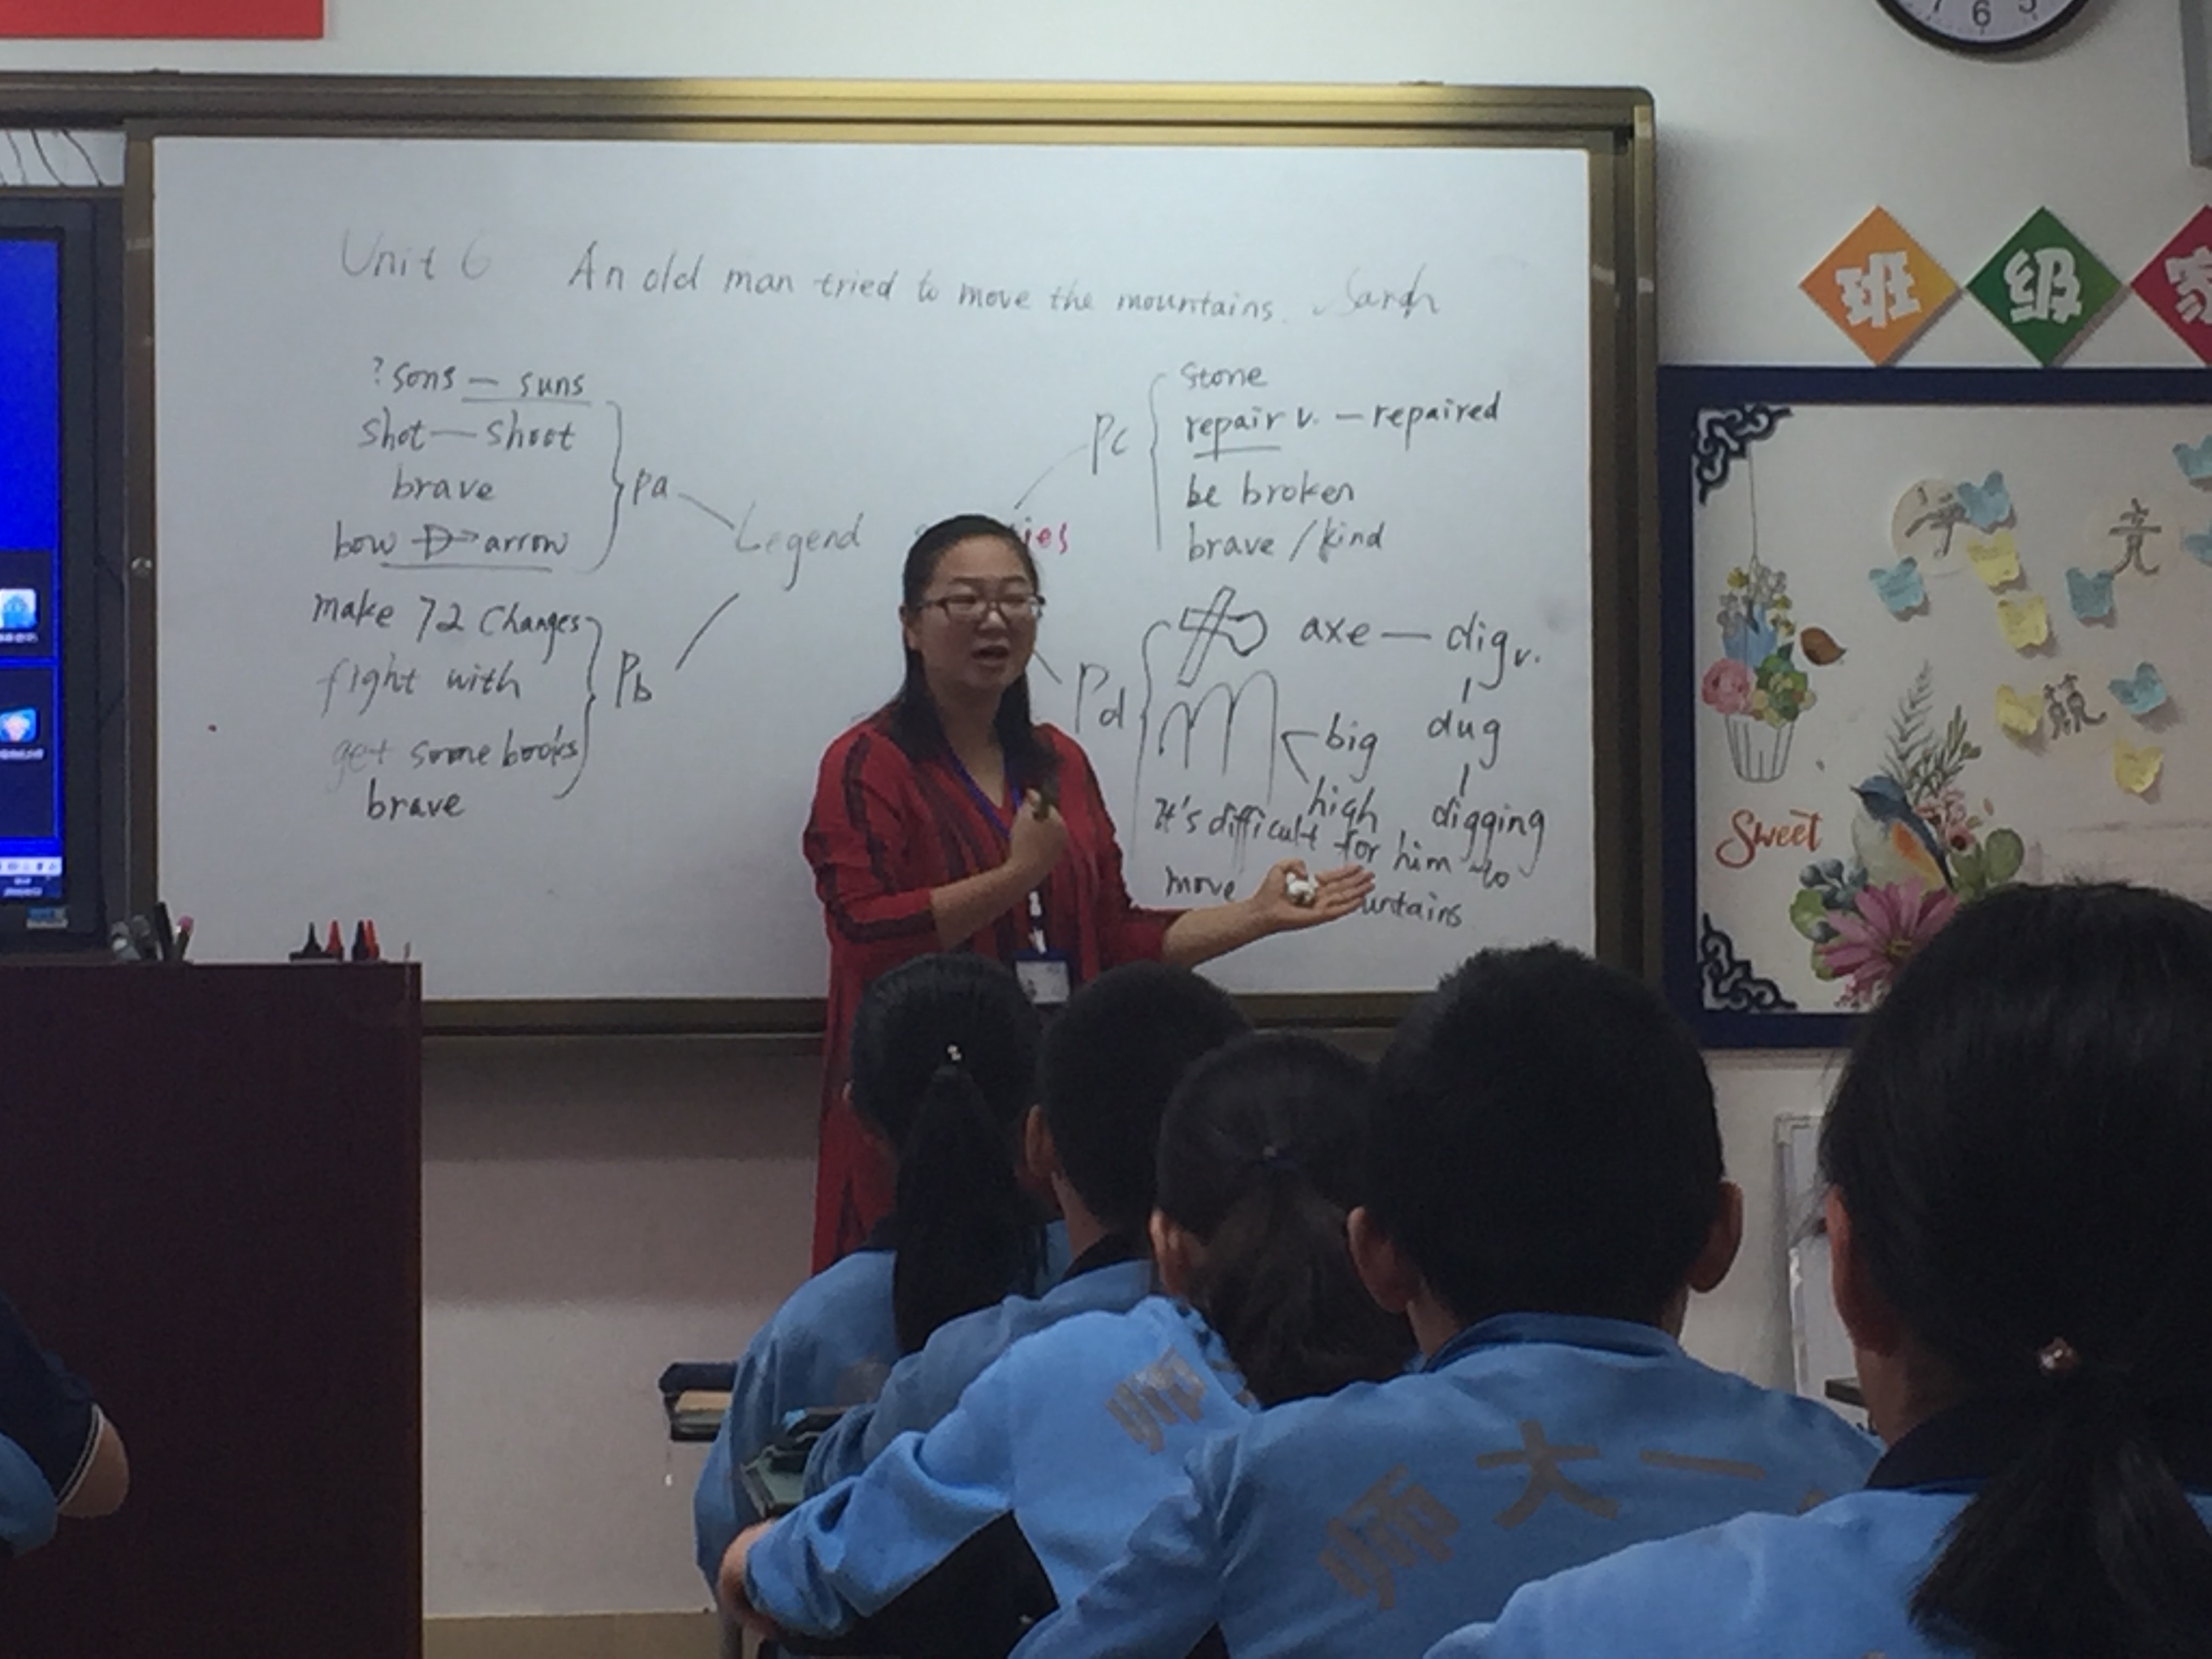 Unit 6 An old man tried to move the mountains. Sarah
? sons — suns
shot — shoot
brave
bow arrow
Pa
make 72 Changes
fight with
get some books
brave
Pb
Legend
ies
Pc
stone
repair v. — repaired
be broken
brave / kind
Pd
axe — dig v.
dug
digging
big
high
It's difficult for him to
move untains
班级
Sweet
竞
6 5
师
师大一